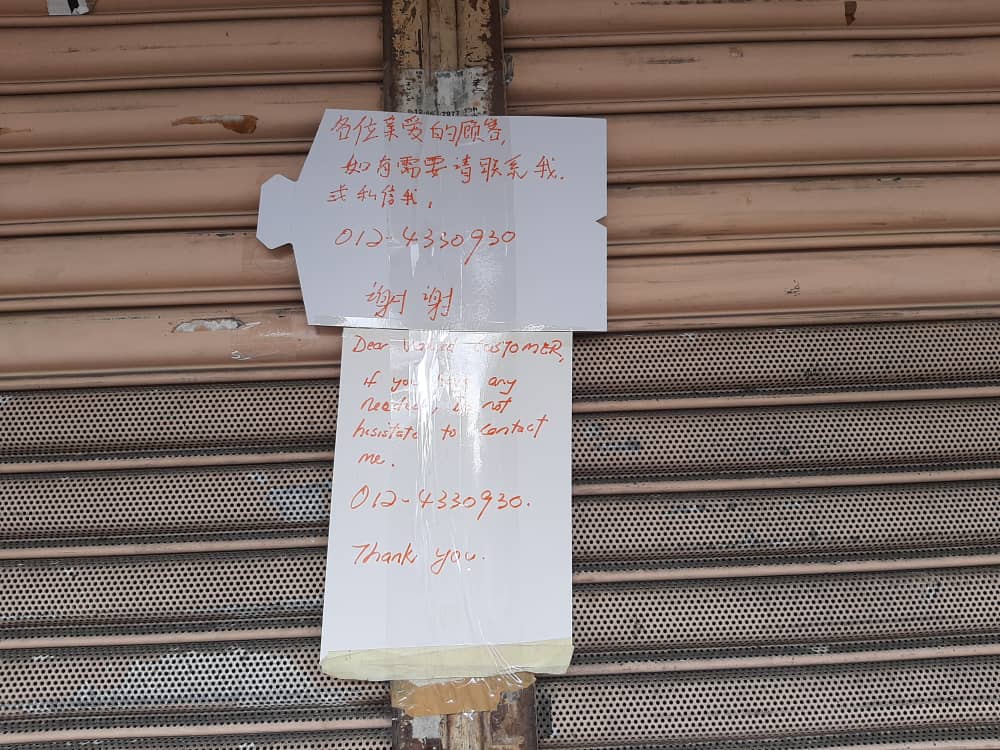 各位亲爱的顾客,
如有需要请联系我.
或私信我,
012-4330930
谢谢
Dear Valued CUSTOMER,
if you have any
needed, do not
hesistate to contact
me.
012-4330930.
Thank you.